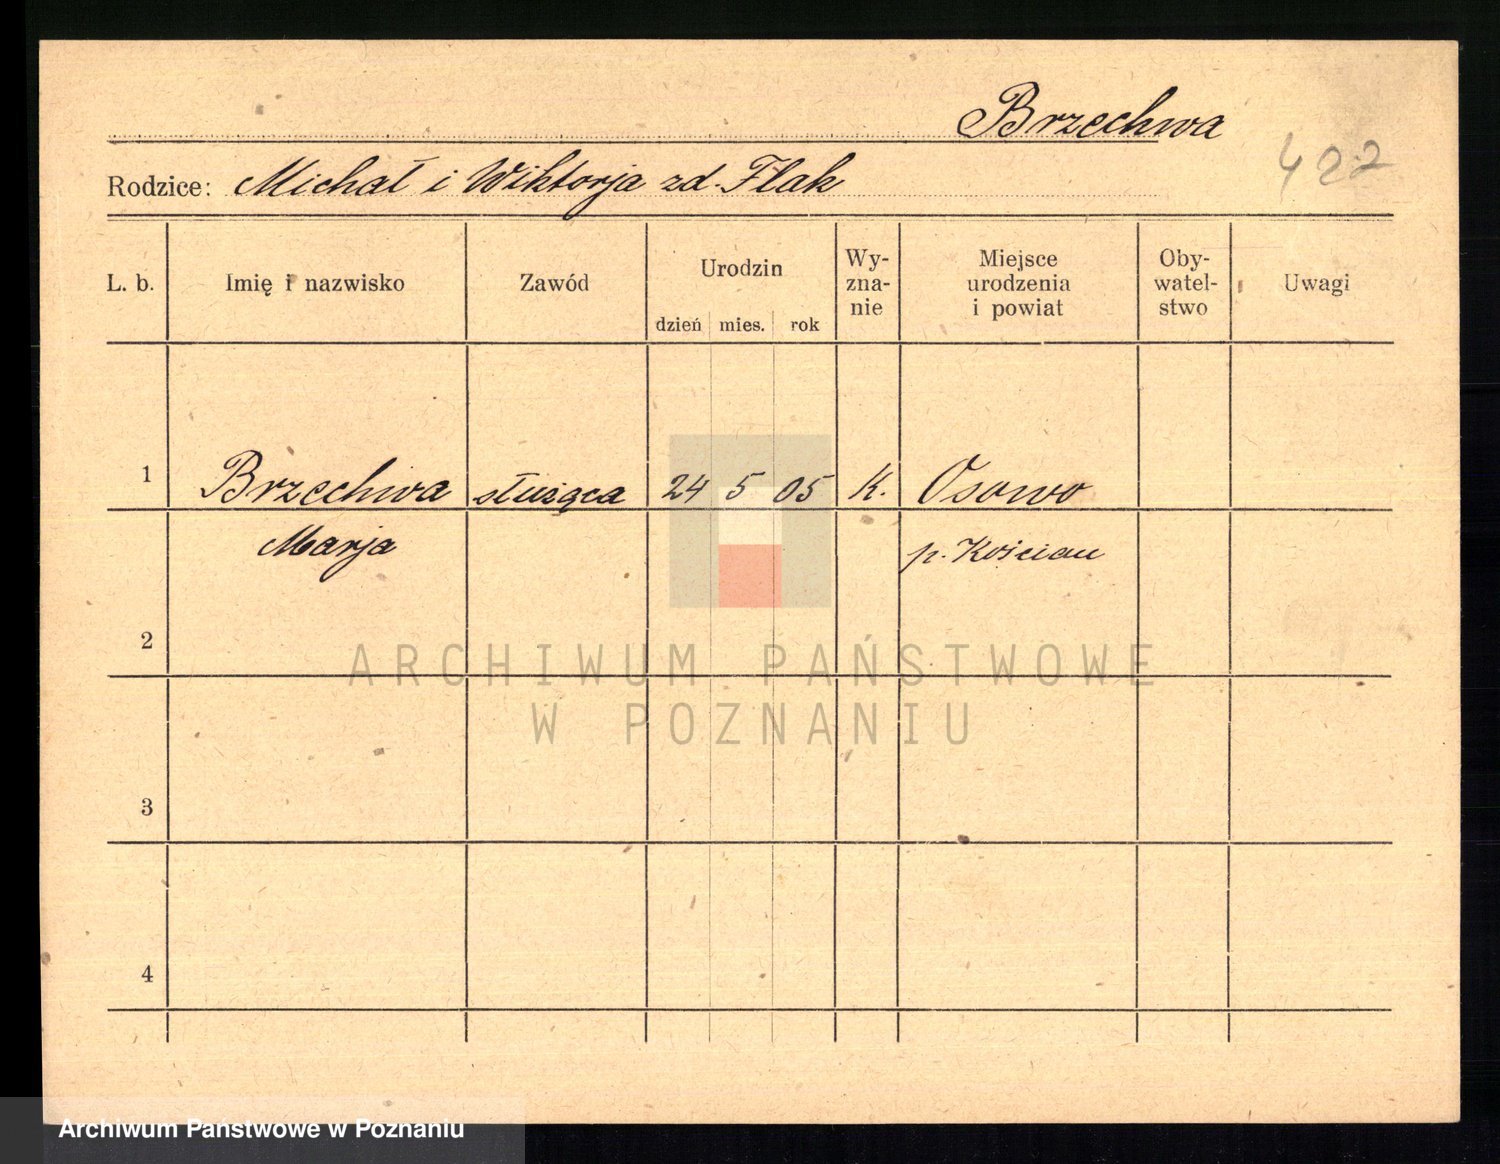 Brzechwa
422
Rodzice: Michał i Wiktorja zd. Flak
L. b. Imię i nazwisko Zawód Urodzin Wy-zna-nie Miejsce urodzenia i powiat Oby-watel-stwo Uwagi
dzień mies. rok
1 Brzechwa służąca 24 5 05 K. Osowo
Marja p. Kościan
2
ARCHIWUM PAŃSTWOWE
W POZNANIU
3
4
Archiwum Państwowe w Poznaniu